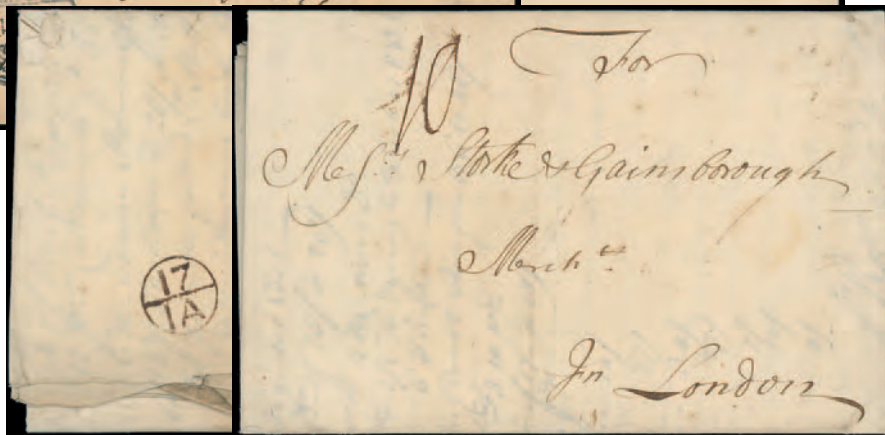 17
IA
10
For
Messrs. Storke & Gainsborough
Merchts.
In London